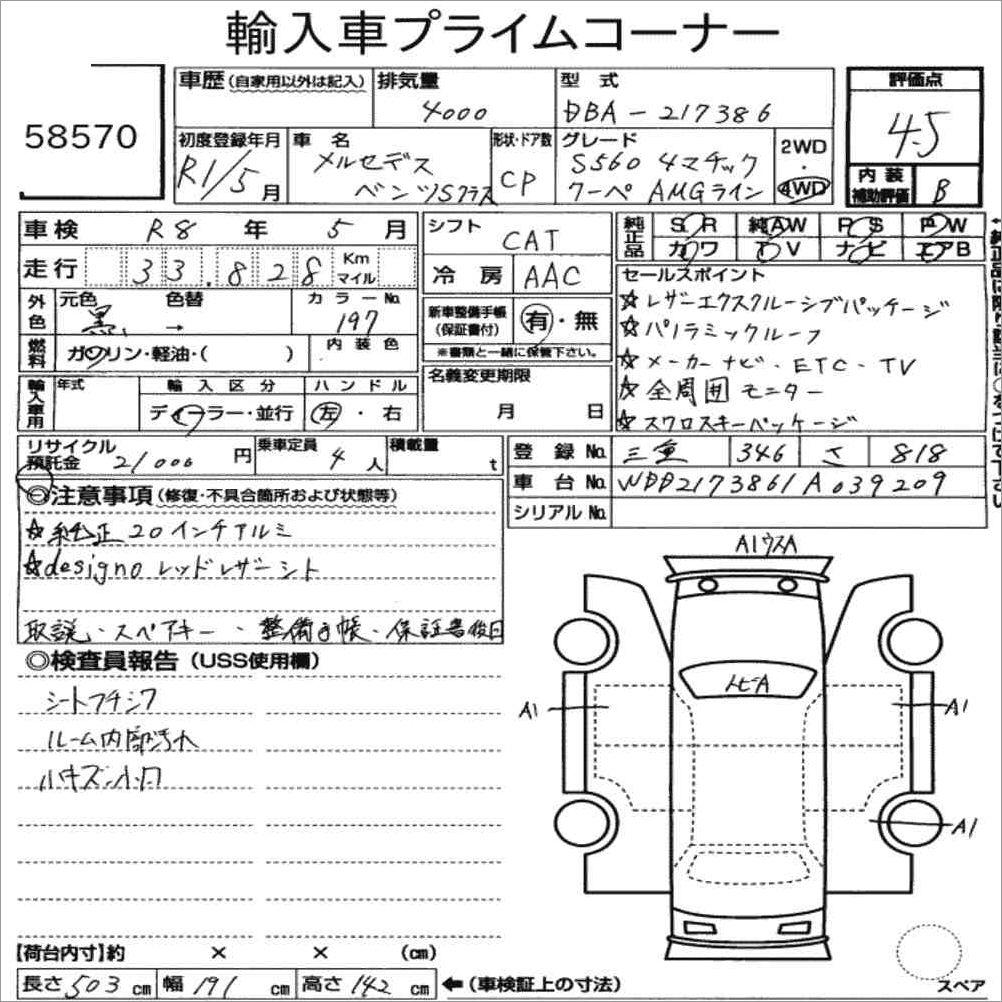 輸入車プライムコーナー
58570
車歴(自家用以外は記入)
排気量
4000
型式
DBA-217386
評価点
4.5
初度登録年月
R1/5月
車名
メルセデス
ベンツSクラス
形状・ドア数
CP
グレード
S560 4マチック
クーペ AMGライン
2WD
4WD
内装
補助評価
B
車検 R8年 5月
走行 33.828 Km
マイル
外色
元色 色替
黒 →
カラーNo.
197
燃料
ガソリン・軽油・( )
内装色
輸入車用
年式
輸入区分
ディーラー・並行
ハンドル
左・右
シフト
CAT
冷房
AAC
新車整備手帳
(保証書付)
有・無
※書類と一緒に保管下さい。
名義変更期限
月 日
純正品
SR 純AW PS PW
カワ TV ナビ エアB
セールスポイント
☆レザーエクスクルーシブパッケージ
☆パノラミックルーフ
☆メーカーナビ・ETC・TV
☆全周囲モニター
☆スワロスキーパッケージ
リサイクル
預託金 21000円
乗車定員
4人
積載量
t
登録No. 三重 346 さ 818
車台No. WDD2173861A039209
シリアルNo.
◎注意事項(修復・不具合箇所および状態等)
☆純正20インチアルミ
☆designoレッドレザーシート
取説・スペアキー・整備手帳・保証書後日
◎検査員報告(USS使用欄)
シートフチシワ
ルーム内部汚れ
ハナキズ小
A1ウスA
トビA
A1
A1
A1
【荷台内寸】約 × × (cm)
長さ503cm 幅191cm 高さ142cm ←(車検証上の寸法)
スペア